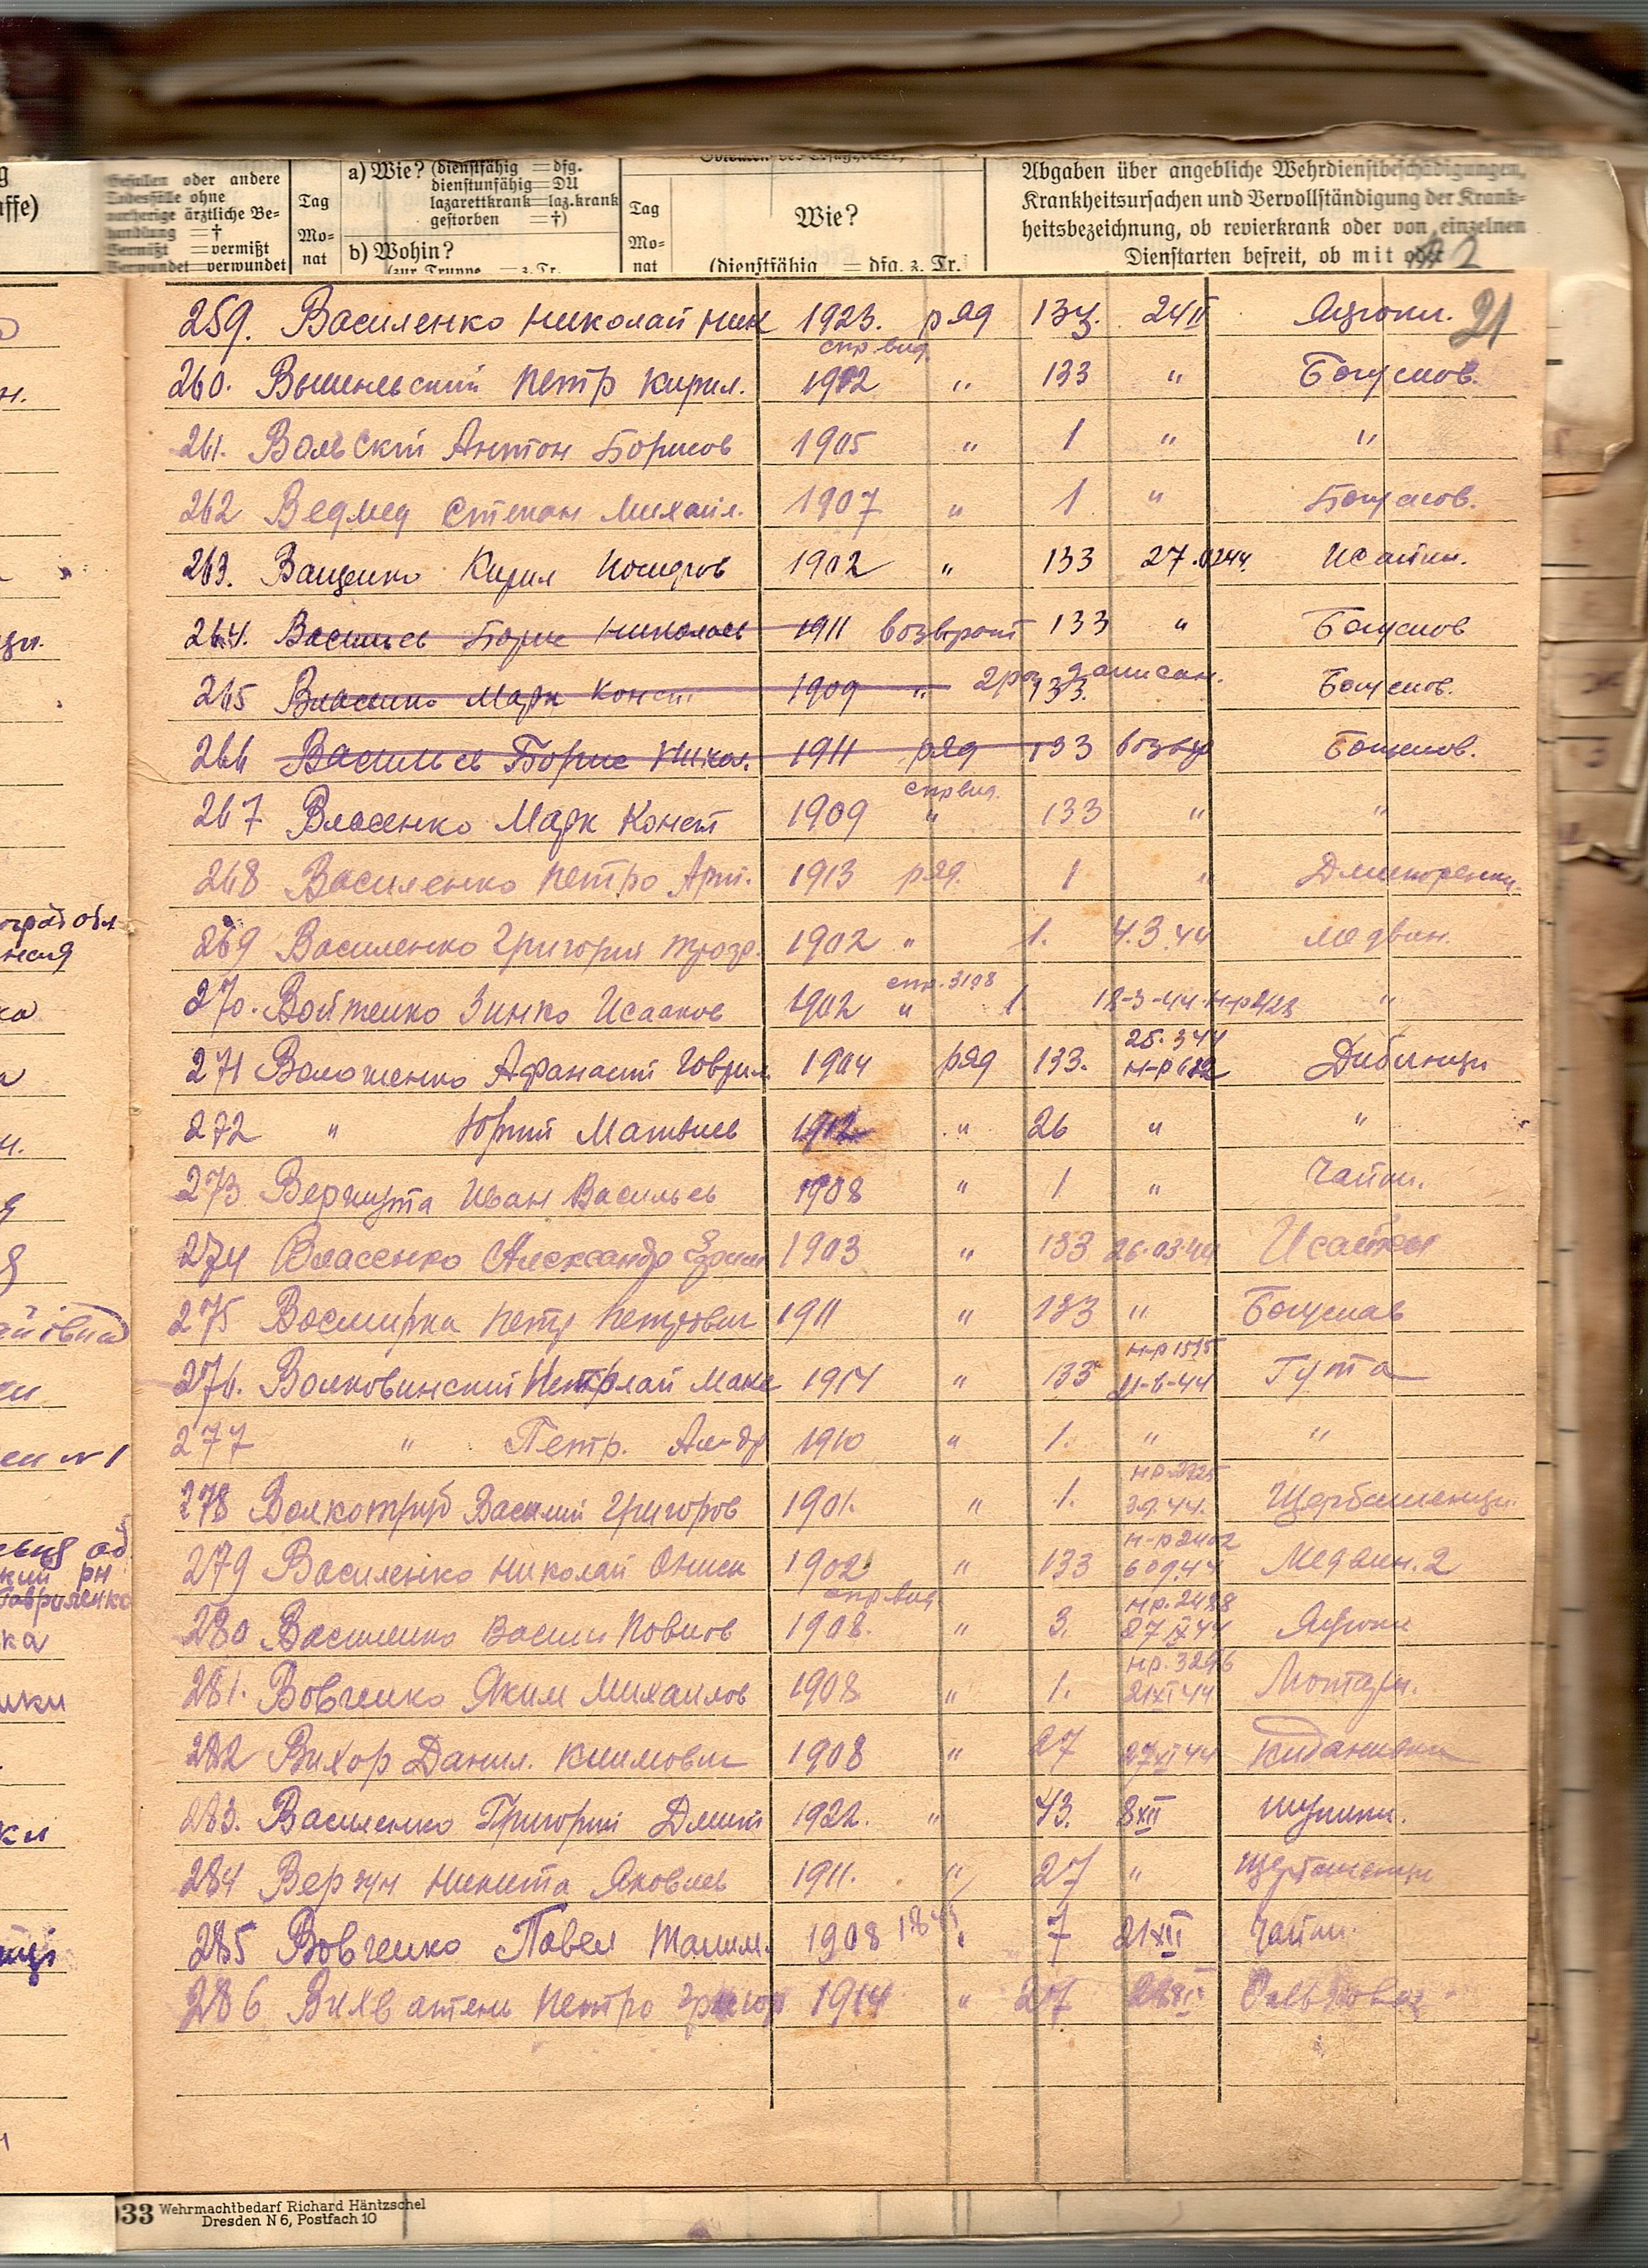 Gefallen oder andere
Todesfälle ohne
vorherige ärztliche Be-
handlung = †
Vermißt = vermißt
Verwundet = verwundet
Tag
Mo-
nat
a) Wie? (dienstfähig = dfg.
dienstunfähig = DU
lazarettkrank = laz.krank
gestorben = †)
b) Wohin?
(zur Truppe = z. Tr.
Tag
Mo-
nat
Wie?
(dienstfähig = dfg. z. Tr.
Abgaben über angebliche Wehrdienstbeschädigungen,
Krankheitsursachen und Vervollständigung der Krank-
heitsbezeichnung, ob revierkrank oder von einzelnen
Dienstarten befreit, ob mit oder
21
259. Василенко Николай Ник 1923. ряд 134. 24 II
спр. вид.
260. Петр Кирил. 1902 " 133 " Богуслов.
261. Вольский Антон Борисов 1905 " 1 " "
262 Ведмед Степан Михайл. 1907 " 1 " Богуслов.
263. Ващенко Кирил 1902 " 133 27.0244. Исайки.
264. Васильев Борис Николаев 1911 возврат 133 " Богуслов
265 Власенко Марк Конст 1909 " 2 раз записан. 133. Богуслов.
266 Васильев Борис Никол. 1911 ряд 133 возвр Богуслов.
спр вид.
267 Власенко Марк Конст 1909 " 133 " "
268 Василенко Петро Арт. 1913 ряд. 1 "
269 Василенко Григорий 1902 " 1. 4.3.44 Медвин.
спр. 3198
270. Войтенко Зинко Исааков 1902 " 1 18-3-44 "
25.344
271 Волошенко Афанасий Гаврил 1904 ряд 133. н-р 682 Дибинци
272 " Юрий Матвиев 1912 " 26 " "
273 Вергута Иван Васильев 1908 " 1 " Чайки.
274 Власенко Александр 1903 " 133 26.03.44 Исайки
275 Восмирка Петр Петрович 1911 " 133 " Богуслав
н-р 1595
276. Волковинский Макс 1914 " 133 21-6-44 Гута
277 " Петр. Ал-др 1910 " 1. " "
нр. 2925
278 Волкотруб Василий Григоров 1901. " 1. 3.9.44. Щербашенци
н-р 2402
279 Василенко Николай Ониск 1902 " 133 609.44 Медвин. 2
спр вид нр. 2488
280 Василенко Васил Повлов 1908. " 3. 27 IX 44
нр. 3296
281. Вовченко Яким Михаилов 1908 " 1. 21 XI 44
282 Вихор Данил. Климович 1908 " 27 27 XI 44 Киданивки
283. Василенко Григорий Дмит 1922. " 43. 8 XII
284 Вергун Никита Яковлев 1911. " 27 " Щербашенци
285 Вовченко Павел 1908 " 7 21 XII Чайки.
286 Вихватень Петро Григор 1914 " 27
033 Wehrmachtbedarf Richard Häntzschel
Dresden N 6, Postfach 10